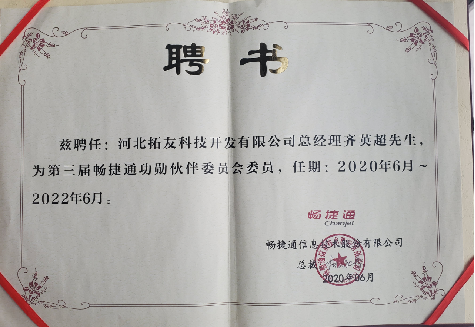 聘书
兹聘任：河北拓友科技开发有限公司总经理齐英超先生，
为第三届畅捷通功勋伙伴委员会委员，任期：2020年6月～
2022年6月。
畅捷通
Chanjet
畅捷通信息技术股份有限公司
总裁
2020年06月